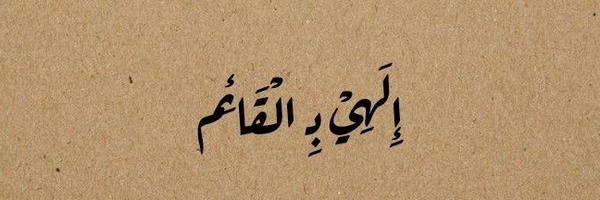 إِلَهِيْ بِ الْقَائِم